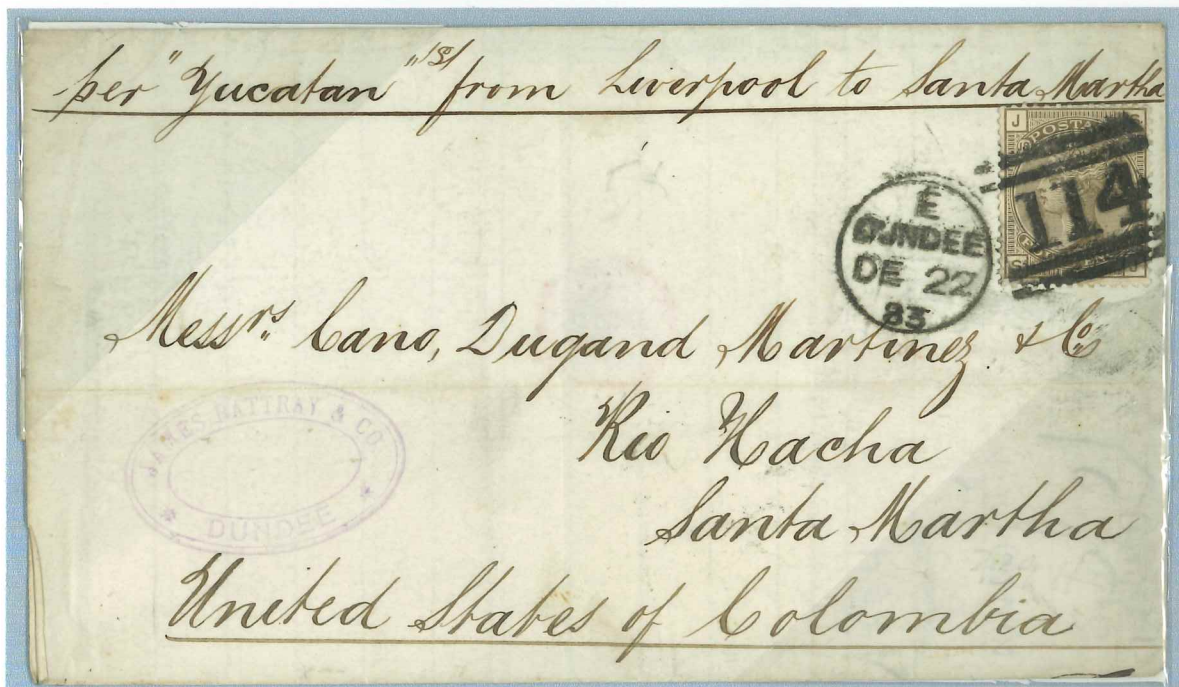 per "Yucatan" from Liverpool to Santa Martha
J
POSTA
114
S
E
DUNDEE
DE 22
83
Messrs. Cano, Dugand Martinez & Co
Rio Hacha
Santa Martha
United States of Colombia
JAMES RATTRAY & CO.
DUNDEE